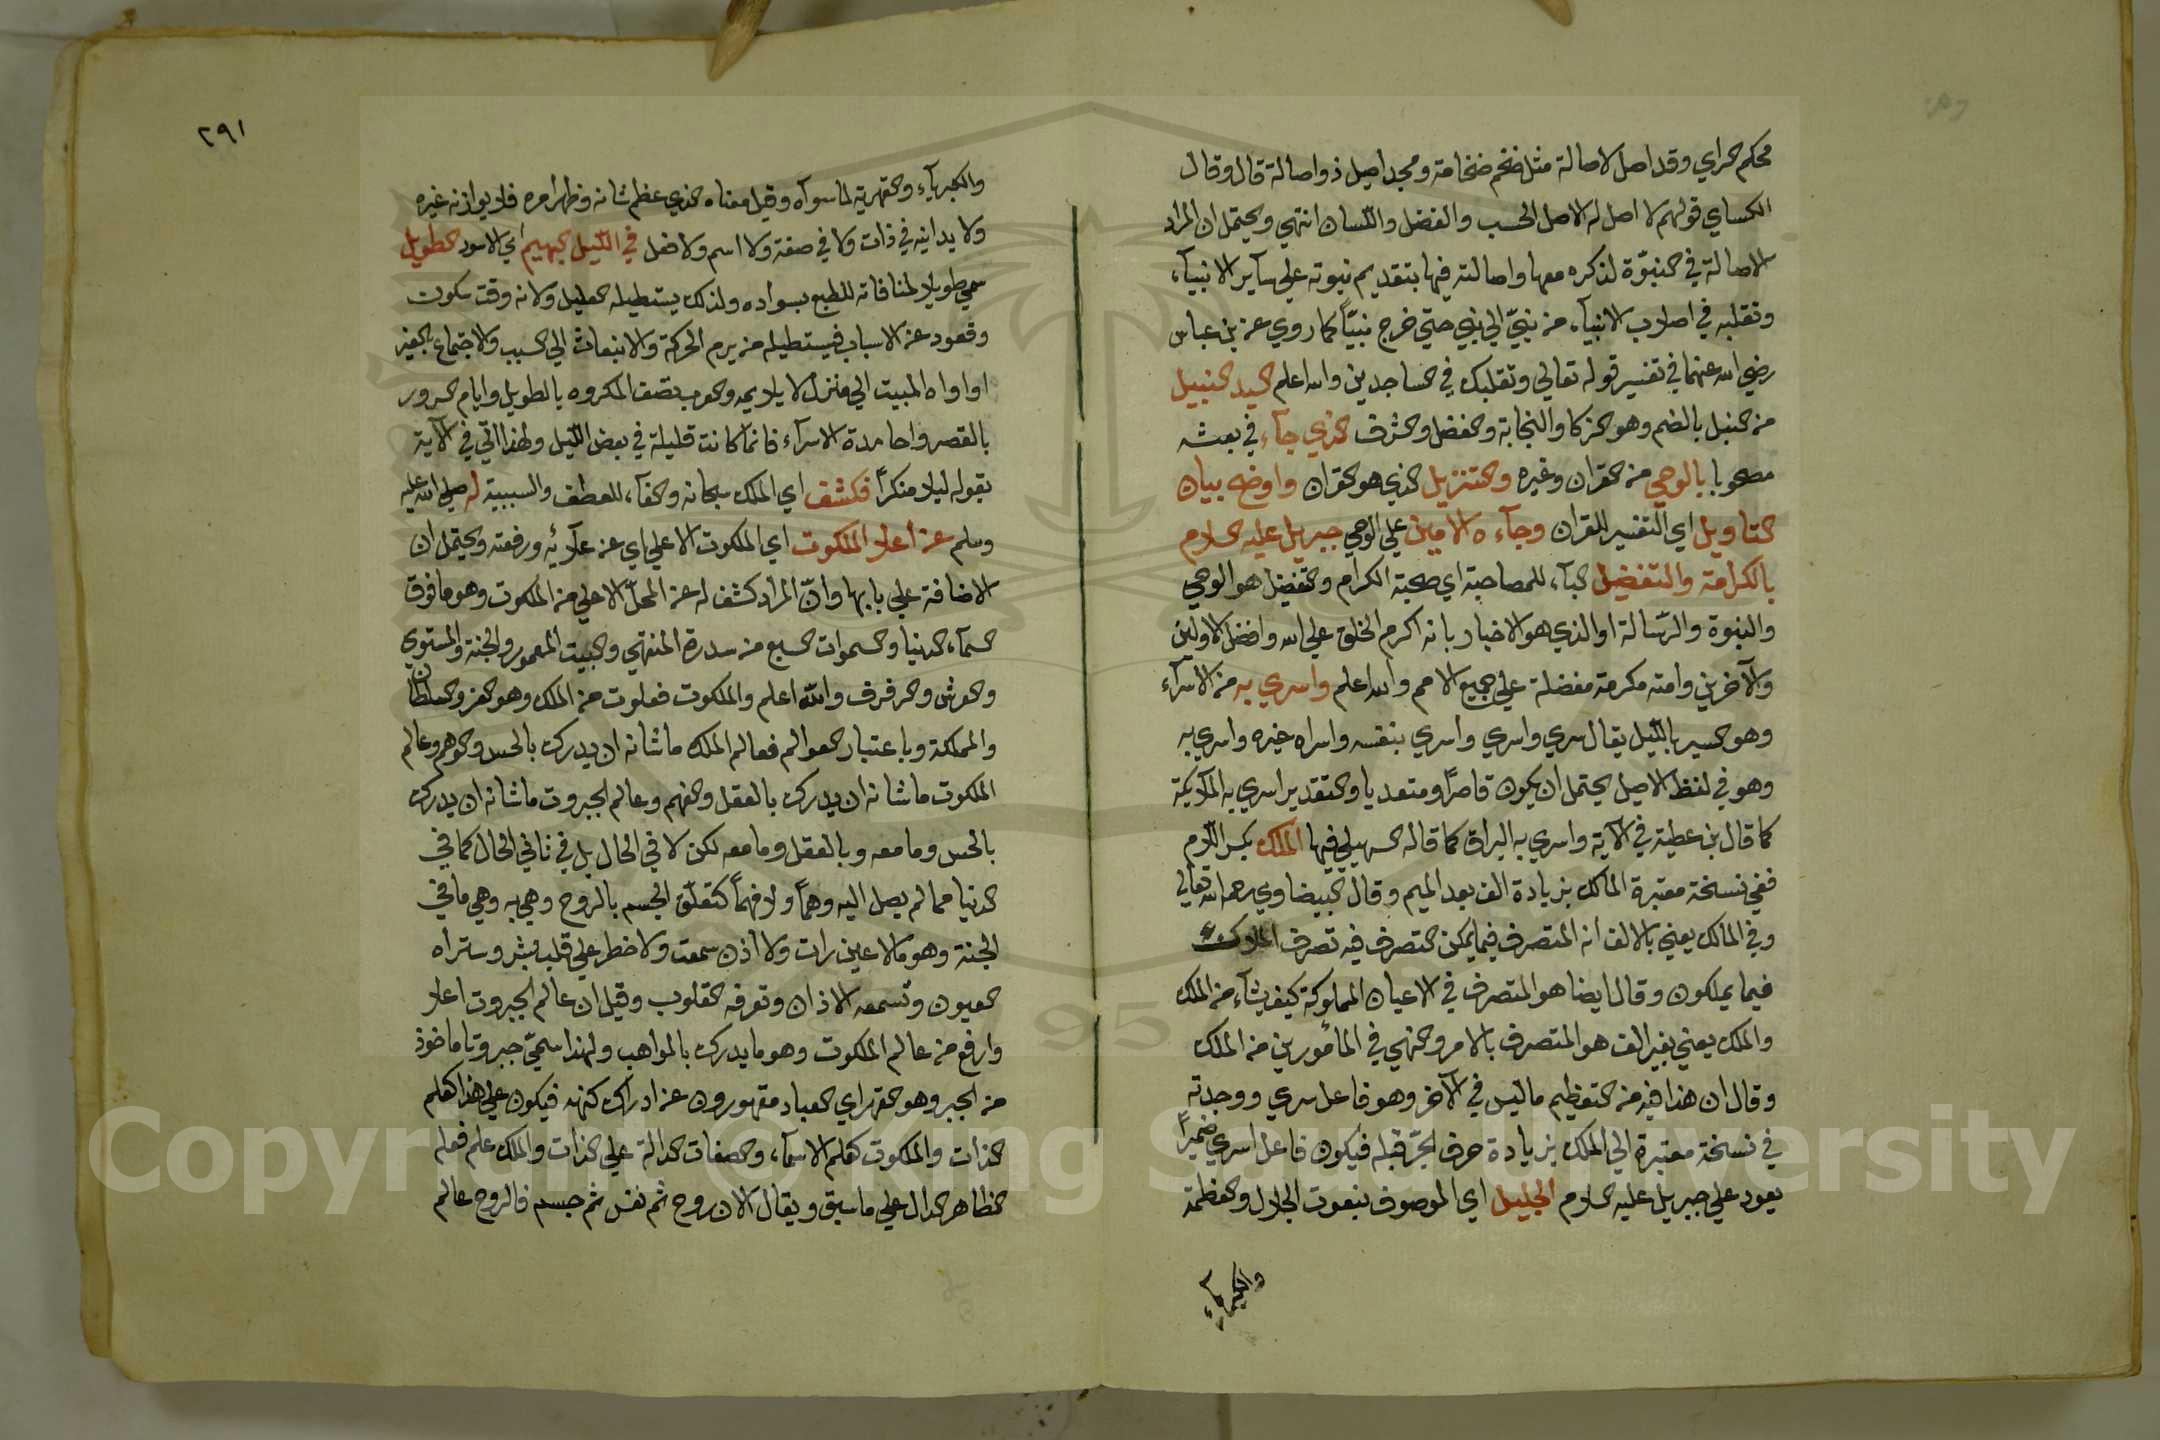 محكم الراي وقد اصل لاصالة مثل ضخم ضخامة ومجد اصيل ذو اصالة قال وقال
الكساي قولهم لا اصل له الاصل الحسب والفضل واللسان انتهي ويحتمل ان المراد
الاصالة في النبوّة لذكره معها واصالته فيها بتقديم نبوته علي سآير الانبيآء
وتقلبه في اصلاب الانبيآء من نبيّ الي نبي حتي خرج نبيّاً كما روي عن بن عباس
رضي الله عنهما في تفسير قوله تعالي وتقلبك في الساجدين والله اعلم السيد النبيل
من النبل بالضم وهو الذكا والنجابة والفضل والشرف الذي جآء في بعثه
مصحوبا بالوحي من القران وغيره والتنزيل الذي هو القران واوضح بيان
التاويل اي التفسير للقران وجآءه الامين علي الوحي جبريل عليه السلام
بالكرامة والتفضيل البآء للمصاحبة اي صحبة الكرام والتفضيل هو الوحي
والنبوة والرّسالة او الذي هو الاخبار بانه اكرم الخلق علي الله وافضل الاولين
والآخرين وامته مكرمة مفضلة علي جميع الامم والله اعلم واسري به من الاسرآء
وهو السير بالليل يقال سري واسري واسري بنفسه واسراه غيره واسري به
وهو في لفظ الاصل يحتمل ان يكون قاصرًا ومتعديا والتقدير اسري به الملآيكة
كما قال بن عطية في الآية واسري به البراق كما قاله السهيلي فيها الملك بكسر اللام
ففي نسخة معتبرة المالك بزيادة الف بعد الميم وقال البيضاوي رحمه الله تعالي
وفي المالك يعني بالالف انه المتصرف فيما يمكن التصرف فيه تصرف الملاك
فيما يملكون وقال ايضا هو المتصرف في الاعيان المملوكة كيف يشآء من الملك
والملك يعني بغير الف هو المتصرف بالامر والنهي في المأمورين من الملك
وقال ان هذا فيه من التعظيم ما ليس في الآخر وهو فاعل سري ووجدته
في نسخة معتبرة الي الملك بزيادة حرف الجرّ قبله فيكون فاعل اسري ضميراً
يعود علي جبريل عليه السلام الجليل اي الموصوف بنعوت الجلال والعظمة
والكبريآء
٢٩١
والكبريآء والقهرية لما سواه وقيل معناه الذي عظم شانه وظهر امره فلا يوازنه غيره
ولا يدانيه في ذات ولا في صفة ولا اسم ولا فعل في اللّيل البهيم اي الاسود الطويل
سمي طويلا لمنافاته للطبع بسواده ولذلك يستطيله العليل ولانه وقت سكون
وقعود عن الاسباب فيستطيله من يرم الحركة والانبعاث الي السبب والاجتماع بالغير
او اواه المبيت الي منزل لا يلايمه والعرب تصف المكروه بالطويل وايام السرور
بالقصر واما مدة الاسرآء فانما كانت قليلة في بعض اللّيل ولهذا اتي في الآية
بقوله ليلا منكراً فكشف اي الملك سبحانه والفآء للعطف والسببية له صلي الله عليه
وسلم عن أعلا الملكوت اي الملكوت الاعلي اي عن علآئه ورفعته ويحتمل ان
الاضافة علي بابها وانّ المراد كشف له عن المحلّ الاعلي من الملكوت وهو ما فوق
السمآء الدنيا والسموات السبع من سدرة المنتهي والبيت المعمور والجنة والمستوي
والعرش والرفرف والله اعلم والملكوت فعلوت من الملك وهو العز والسلطان
والمملكة وباعتبار العوالم فعالم الملك ما شانه ان يدرك بالحس والوهم وعالم
الملكوت ما شانه ان يدرك بالعقل والفهم وعالم الجبروت ما شانه ان يدرك
بالحس وما معه وبالعقل وما معه لكن لا في الحال بل في ثاني الحال كما في
الدنيا مما لم يصل اليه وهمًا ولا فهمًا كتعلّق الجسم بالروح وهي به وهي ما في
الجنة وهو ما لا عين رات ولا أذن سمعت ولا خطر علي قلب بشر وستراه
العيون وتسمعه الاذان وتعرفه القلوب وقيل ان عالم الجبروت اعلا
وارفع من عالم الملكوت وهو ما يدرك بالمواهب ولهذا سمّي جبروتا ماخوذ
من الجبر وهو القهر اي العباد مقهورون عن ادراك كنهه فيكون علي هذا كعلم
الذات والملكوت كعلم الاسمآء والصفات الدالة علي الذات والملك علم فعلم
الظاهر الدال علي ما سبق ويقال الان روح ثم نفس ثم جسم فالروح عالم
Copyright © King Saud University